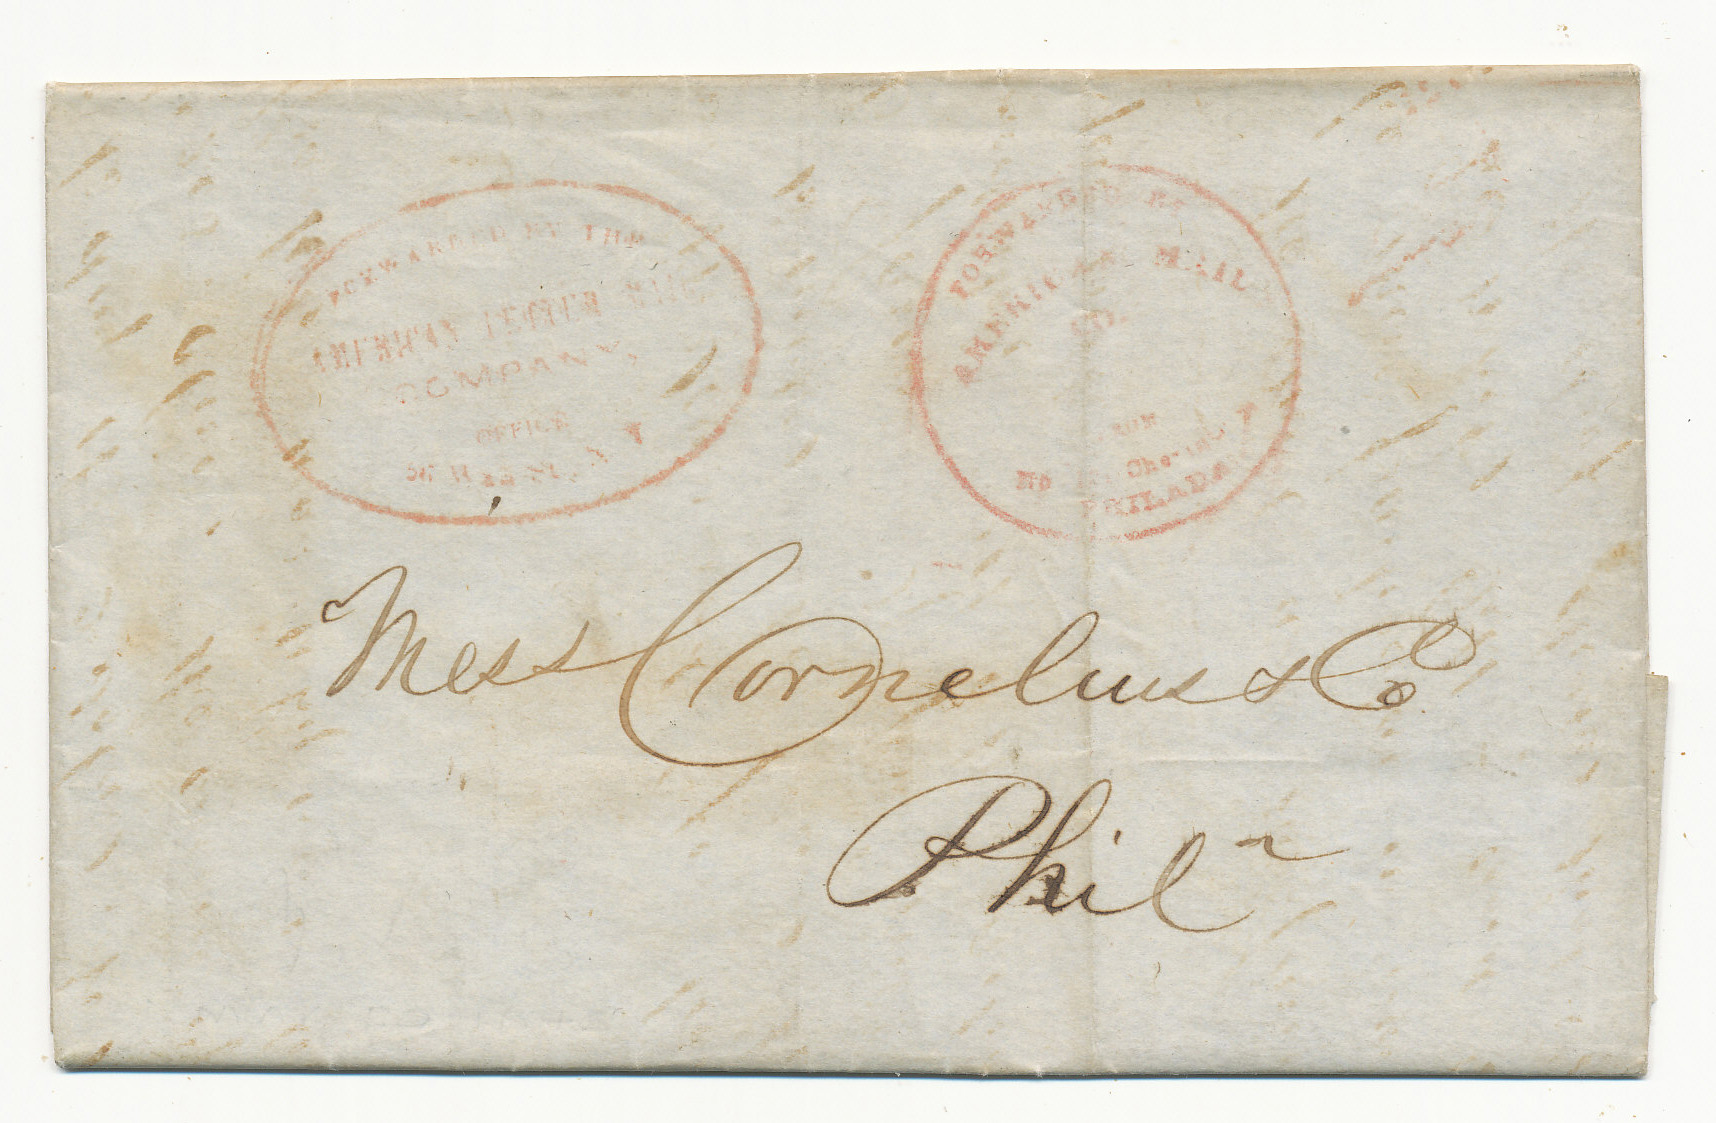 FORWARDED BY THE
AMERICAN LETTER MAIL
COMPANY,
OFFICE
N Y
FORWARDED BY
AMERICAN MAIL
CO.
FROM
No
PHILADA
Mess Cornelius & Co
Phila